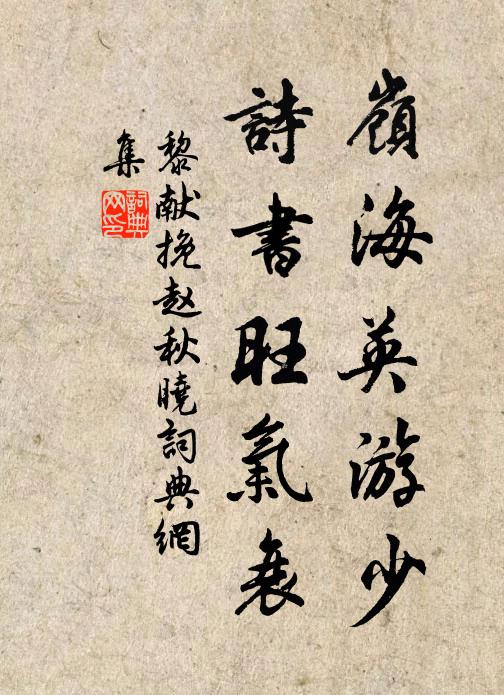 嶺海英游少
詩書旺氣衰
黎献挽趙秋曉詞典網
集
詞典網印